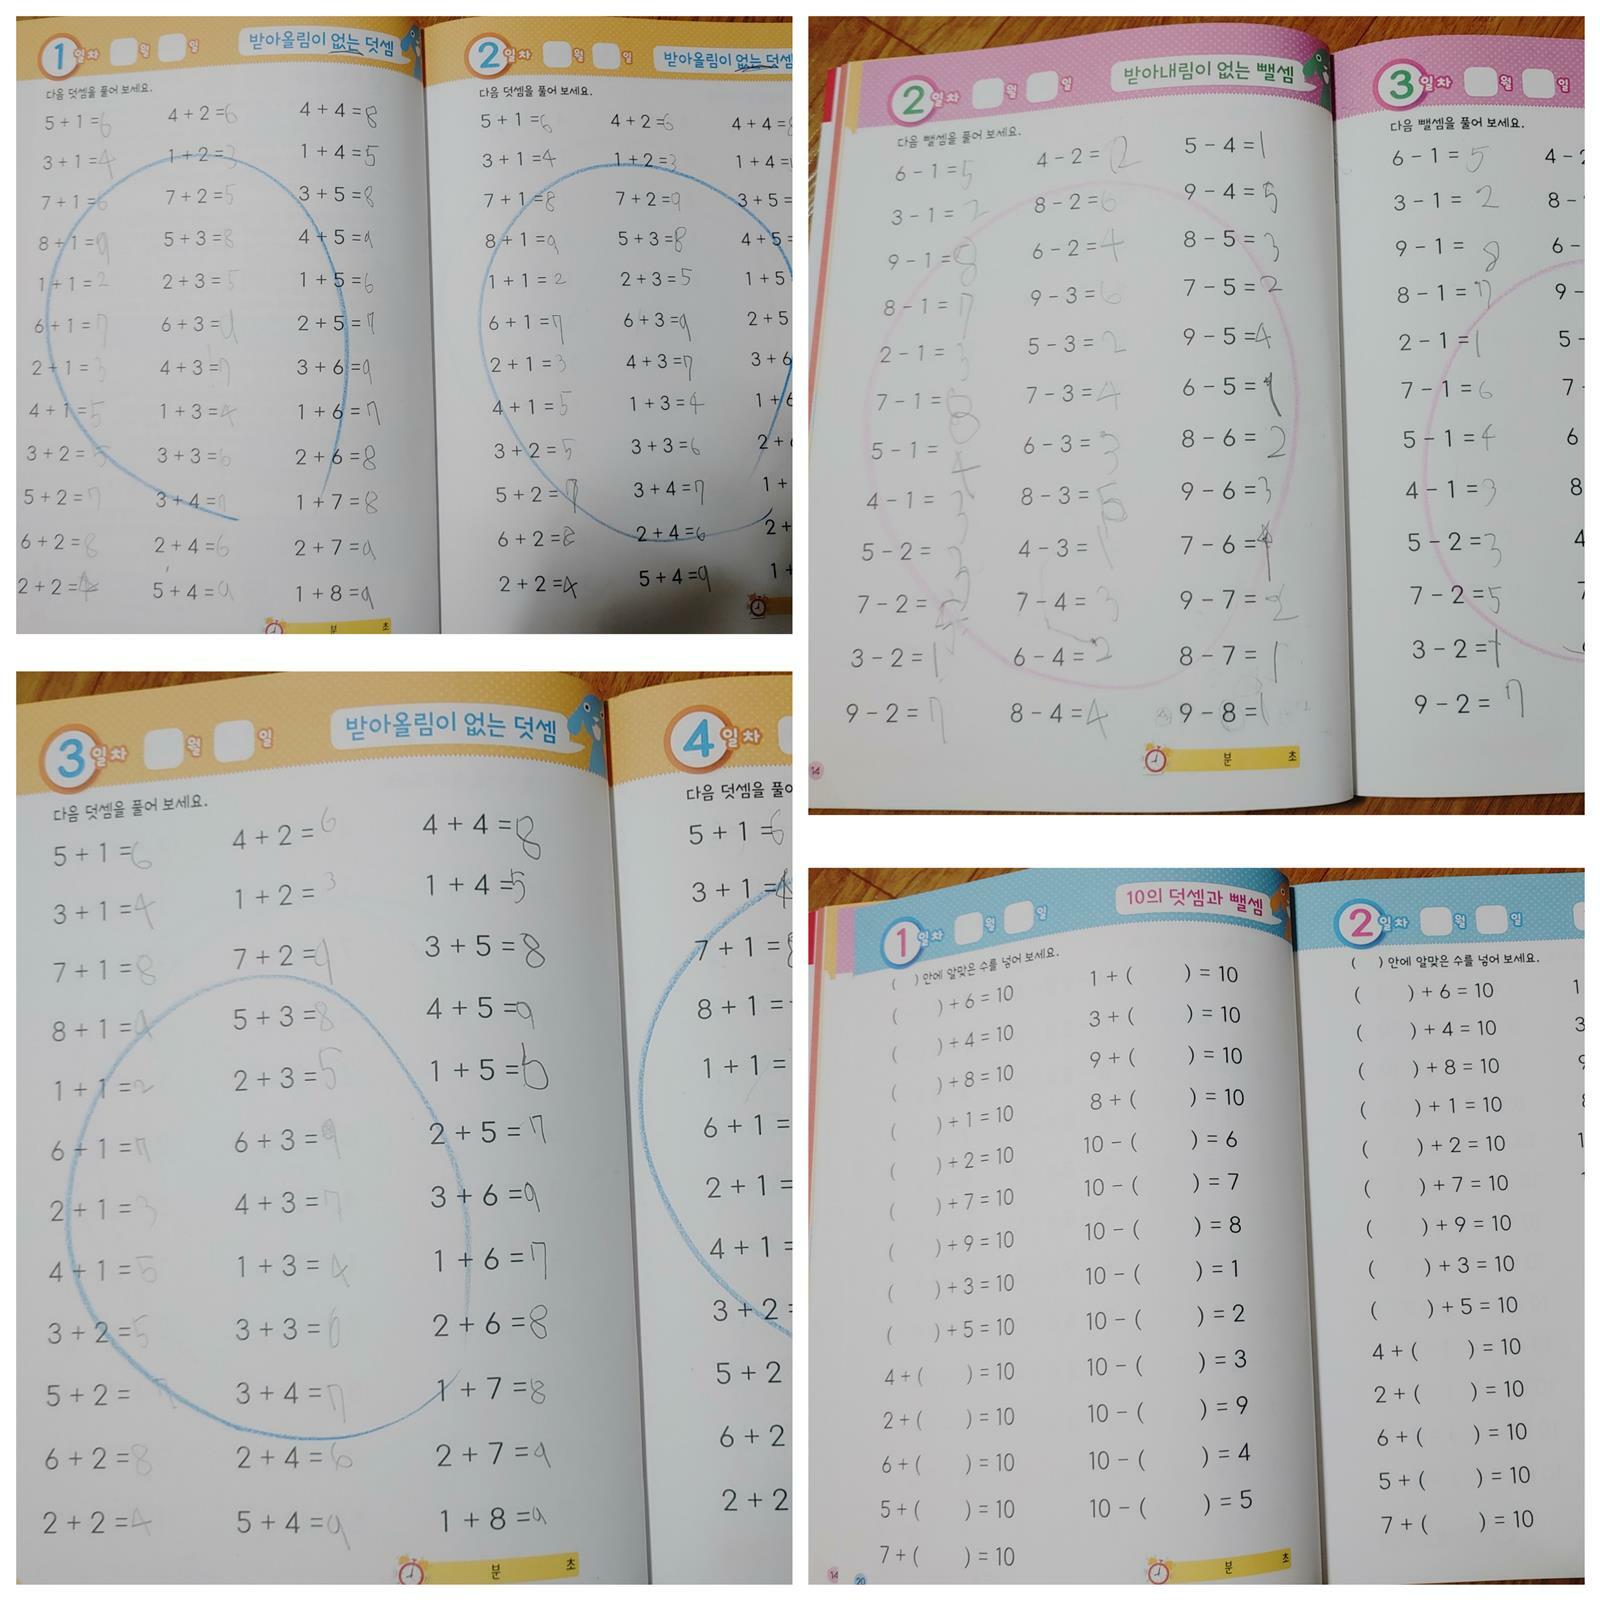 1일차 월 일 받아올림이 없는 덧셈
다음 덧셈을 풀어 보세요.
5 + 1 = 6 4 + 2 = 6 4 + 4 = 8
3 + 1 = 4 1 + 2 = 3 1 + 4 = 5
7 + 1 = 6 7 + 2 = 5 3 + 5 = 8
8 + 1 = 9 5 + 3 = 8 4 + 5 = 9
1 + 1 = 2 2 + 3 = 5 1 + 5 = 6
6 + 1 = 7 6 + 3 = 9 2 + 5 = 7
2 + 1 = 3 4 + 3 = 7 3 + 6 = 9
4 + 1 = 5 1 + 3 = 4 1 + 6 = 7
3 + 2 = 5 3 + 3 = 6 2 + 6 = 8
5 + 2 = 7 3 + 4 = 7 1 + 7 = 8
6 + 2 = 8 2 + 4 = 6 2 + 7 = 9
2 + 2 = 4 5 + 4 = 9 1 + 8 = 9
분 초
2일차 월 일 받아올림이 없는 덧셈
다음 덧셈을 풀어 보세요.
5 + 1 = 6 4 + 2 = 6 4 + 4 = 8
3 + 1 = 4 1 + 2 = 3 1 + 4 =
7 + 1 = 8 7 + 2 = 9 3 + 5 =
8 + 1 = 9 5 + 3 = 8 4 + 5 =
1 + 1 = 2 2 + 3 = 5 1 + 5
6 + 1 = 7 6 + 3 = 9 2 + 5
2 + 1 = 3 4 + 3 = 7 3 + 6
4 + 1 = 5 1 + 3 = 4 1 + 6
3 + 2 = 5 3 + 3 = 6 2 +
5 + 2 = 7 3 + 4 = 7 1 +
6 + 2 = 8 2 + 4 = 6 2 +
2 + 2 = 4 5 + 4 = 9 1 +
2일차 월 일 받아내림이 없는 뺄셈
다음 뺄셈을 풀어 보세요.
6 - 1 = 5 4 - 2 = 2 5 - 4 = 1
3 - 1 = 2 8 - 2 = 6 9 - 4 = 5
9 - 1 = 8 6 - 2 = 4 8 - 5 = 3
8 - 1 = 7 9 - 3 = 6 7 - 5 = 2
2 - 1 = 3 5 - 3 = 2 9 - 5 = 4
7 - 1 = 7 - 3 = 4 6 - 5 = 1
5 - 1 = 4 6 - 3 = 3 8 - 6 = 2
4 - 1 = 3 8 - 3 = 5 9 - 6 = 3
5 - 2 = 3 4 - 3 = 1 7 - 6 = 1
7 - 2 = 7 - 4 = 3 9 - 7 = 2
3 - 2 = 1 6 - 4 = 2 8 - 7 = 1
9 - 2 = 7 8 - 4 = 4 9 - 8 = 1
분 초
14
3일차 월 일
다음 뺄셈을 풀어 보세요.
6 - 1 = 5 4 - 2
3 - 1 = 2 8 -
9 - 1 = 8 6 -
8 - 1 = 7 9 -
2 - 1 = 1 5 -
7 - 1 = 6 7 -
5 - 1 = 4 6
4 - 1 = 3 8
5 - 2 = 3 4
7 - 2 = 5 7
3 - 2 = 1
9 - 2 = 7
3일차 월 일 받아올림이 없는 덧셈
다음 덧셈을 풀어 보세요.
5 + 1 = 6 4 + 2 = 6 4 + 4 = 8
3 + 1 = 4 1 + 2 = 3 1 + 4 = 5
7 + 1 = 8 7 + 2 = 9 3 + 5 = 8
8 + 1 = 9 5 + 3 = 8 4 + 5 = 9
1 + 1 = 2 2 + 3 = 5 1 + 5 = 6
6 + 1 = 7 6 + 3 = 9 2 + 5 = 7
2 + 1 = 3 4 + 3 = 7 3 + 6 = 9
4 + 1 = 5 1 + 3 = 4 1 + 6 = 7
3 + 2 = 5 3 + 3 = 6 2 + 6 = 8
5 + 2 = 7 3 + 4 = 7 1 + 7 = 8
6 + 2 = 8 2 + 4 = 6 2 + 7 = 9
2 + 2 = 4 5 + 4 = 9 1 + 8 = 9
분 초
4일차
다음 덧셈을 풀어
5 + 1 = 6
3 + 1 = 4
7 + 1 = 8
8 + 1 =
1 + 1 =
6 + 1 =
2 + 1 =
4 + 1 =
3 + 2 =
5 + 2
6 + 2
2 + 2
1일차 월 일 10의 덧셈과 뺄셈
( ) 안에 알맞은 수를 넣어 보세요.
( ) + 6 = 10 1 + ( ) = 10
( ) + 4 = 10 3 + ( ) = 10
( ) + 8 = 10 9 + ( ) = 10
( ) + 1 = 10 8 + ( ) = 10
( ) + 2 = 10 10 - ( ) = 6
( ) + 7 = 10 10 - ( ) = 7
( ) + 9 = 10 10 - ( ) = 8
( ) + 3 = 10 10 - ( ) = 1
( ) + 5 = 10 10 - ( ) = 2
4 + ( ) = 10 10 - ( ) = 3
2 + ( ) = 10 10 - ( ) = 9
6 + ( ) = 10 10 - ( ) = 4
5 + ( ) = 10 10 - ( ) = 5
7 + ( ) = 10
분 초
14 20
2일차 월 일
( ) 안에 알맞은 수를 넣어 보세요.
( ) + 6 = 10 1
( ) + 4 = 10 3
( ) + 8 = 10 9
( ) + 1 = 10 8
( ) + 2 = 10 1
( ) + 7 = 10 1
( ) + 9 = 10
( ) + 3 = 10
( ) + 5 = 10
4 + ( ) = 10
2 + ( ) = 10
6 + ( ) = 10
5 + ( ) = 10
7 + ( ) = 10